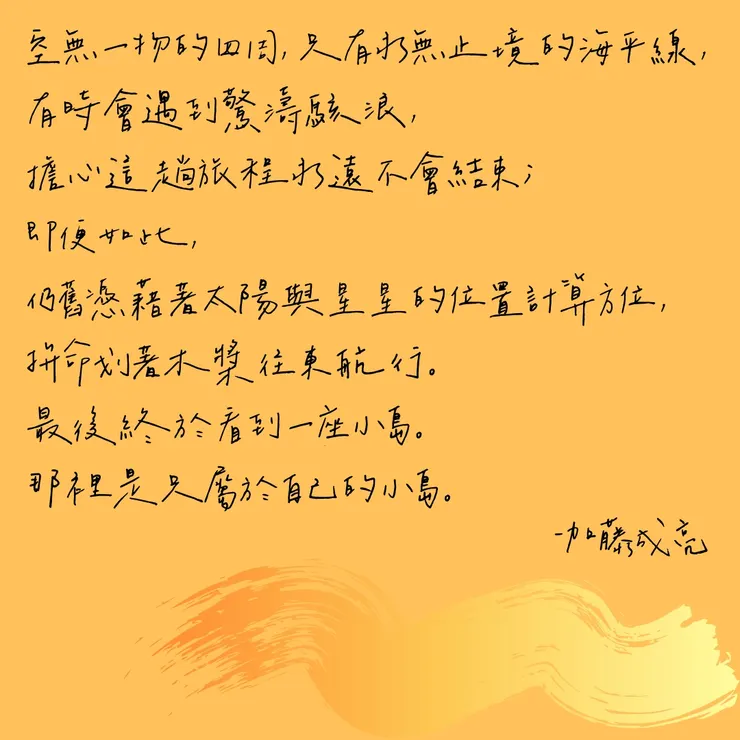 空無一物的四周,只有永無止境的海平線,
有時會遇到驚濤駭浪,
擔心這趟旅程永遠不會結束;
即便如此,
仍舊憑藉著太陽與星星的位置計算方位,
拼命划著木槳往東航行。
最後終於看到一座小島。
那裡是只屬於自己的小島。
-加藤成亮